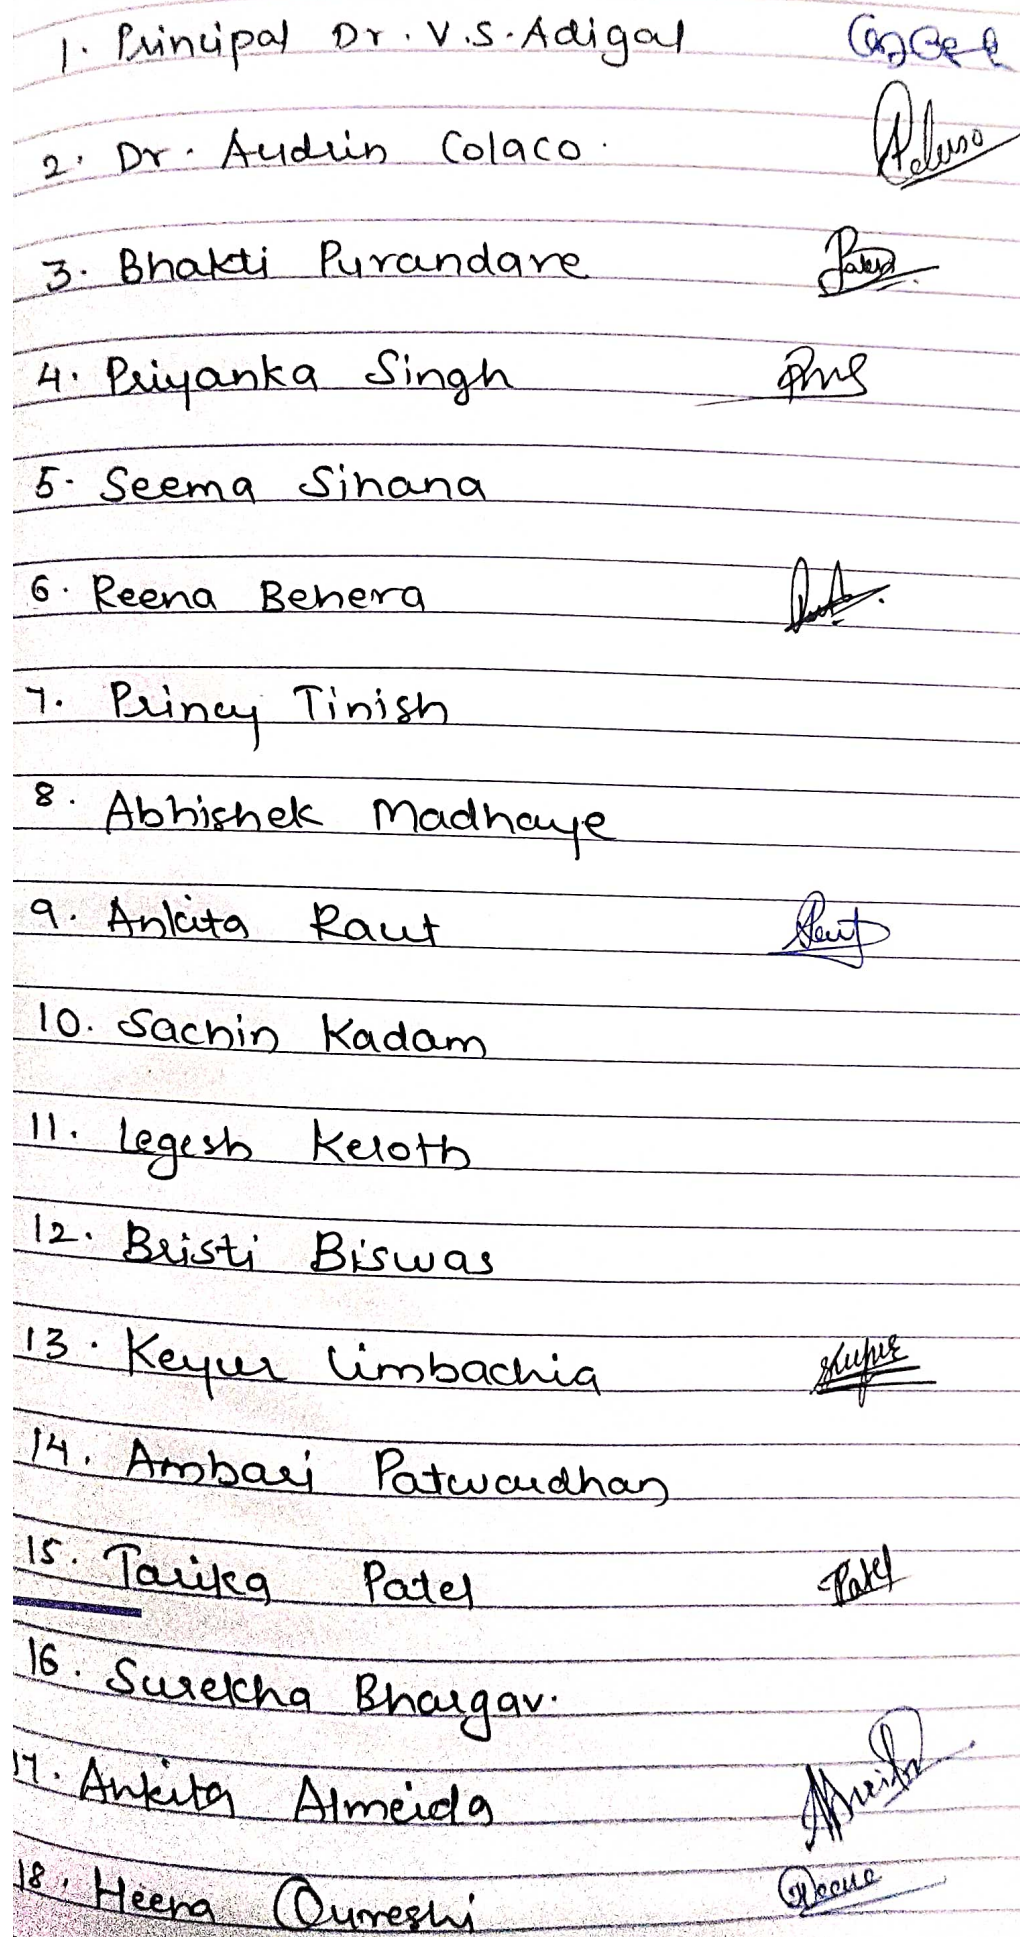 1. Principal Dr. V.S. Adigal
2. Dr. Audrin Colaco.
3. Bhakti Purandare
4. Priyanka Singh
5. Seema Sinana
6. Reena Behera
7. Princy Tinish
8. Abhishek Madhaye
9. Ankita Raut
10. Sachin Kadam
11. Legesh Keloth
12. Bristi Biswas
13. Keyur Limbachia
14. Ambari Patwardhan
15. Tarika Patel Patel
16. Surekha Bhargav.
17. Ankita Almeida
18. Heena Qureshi